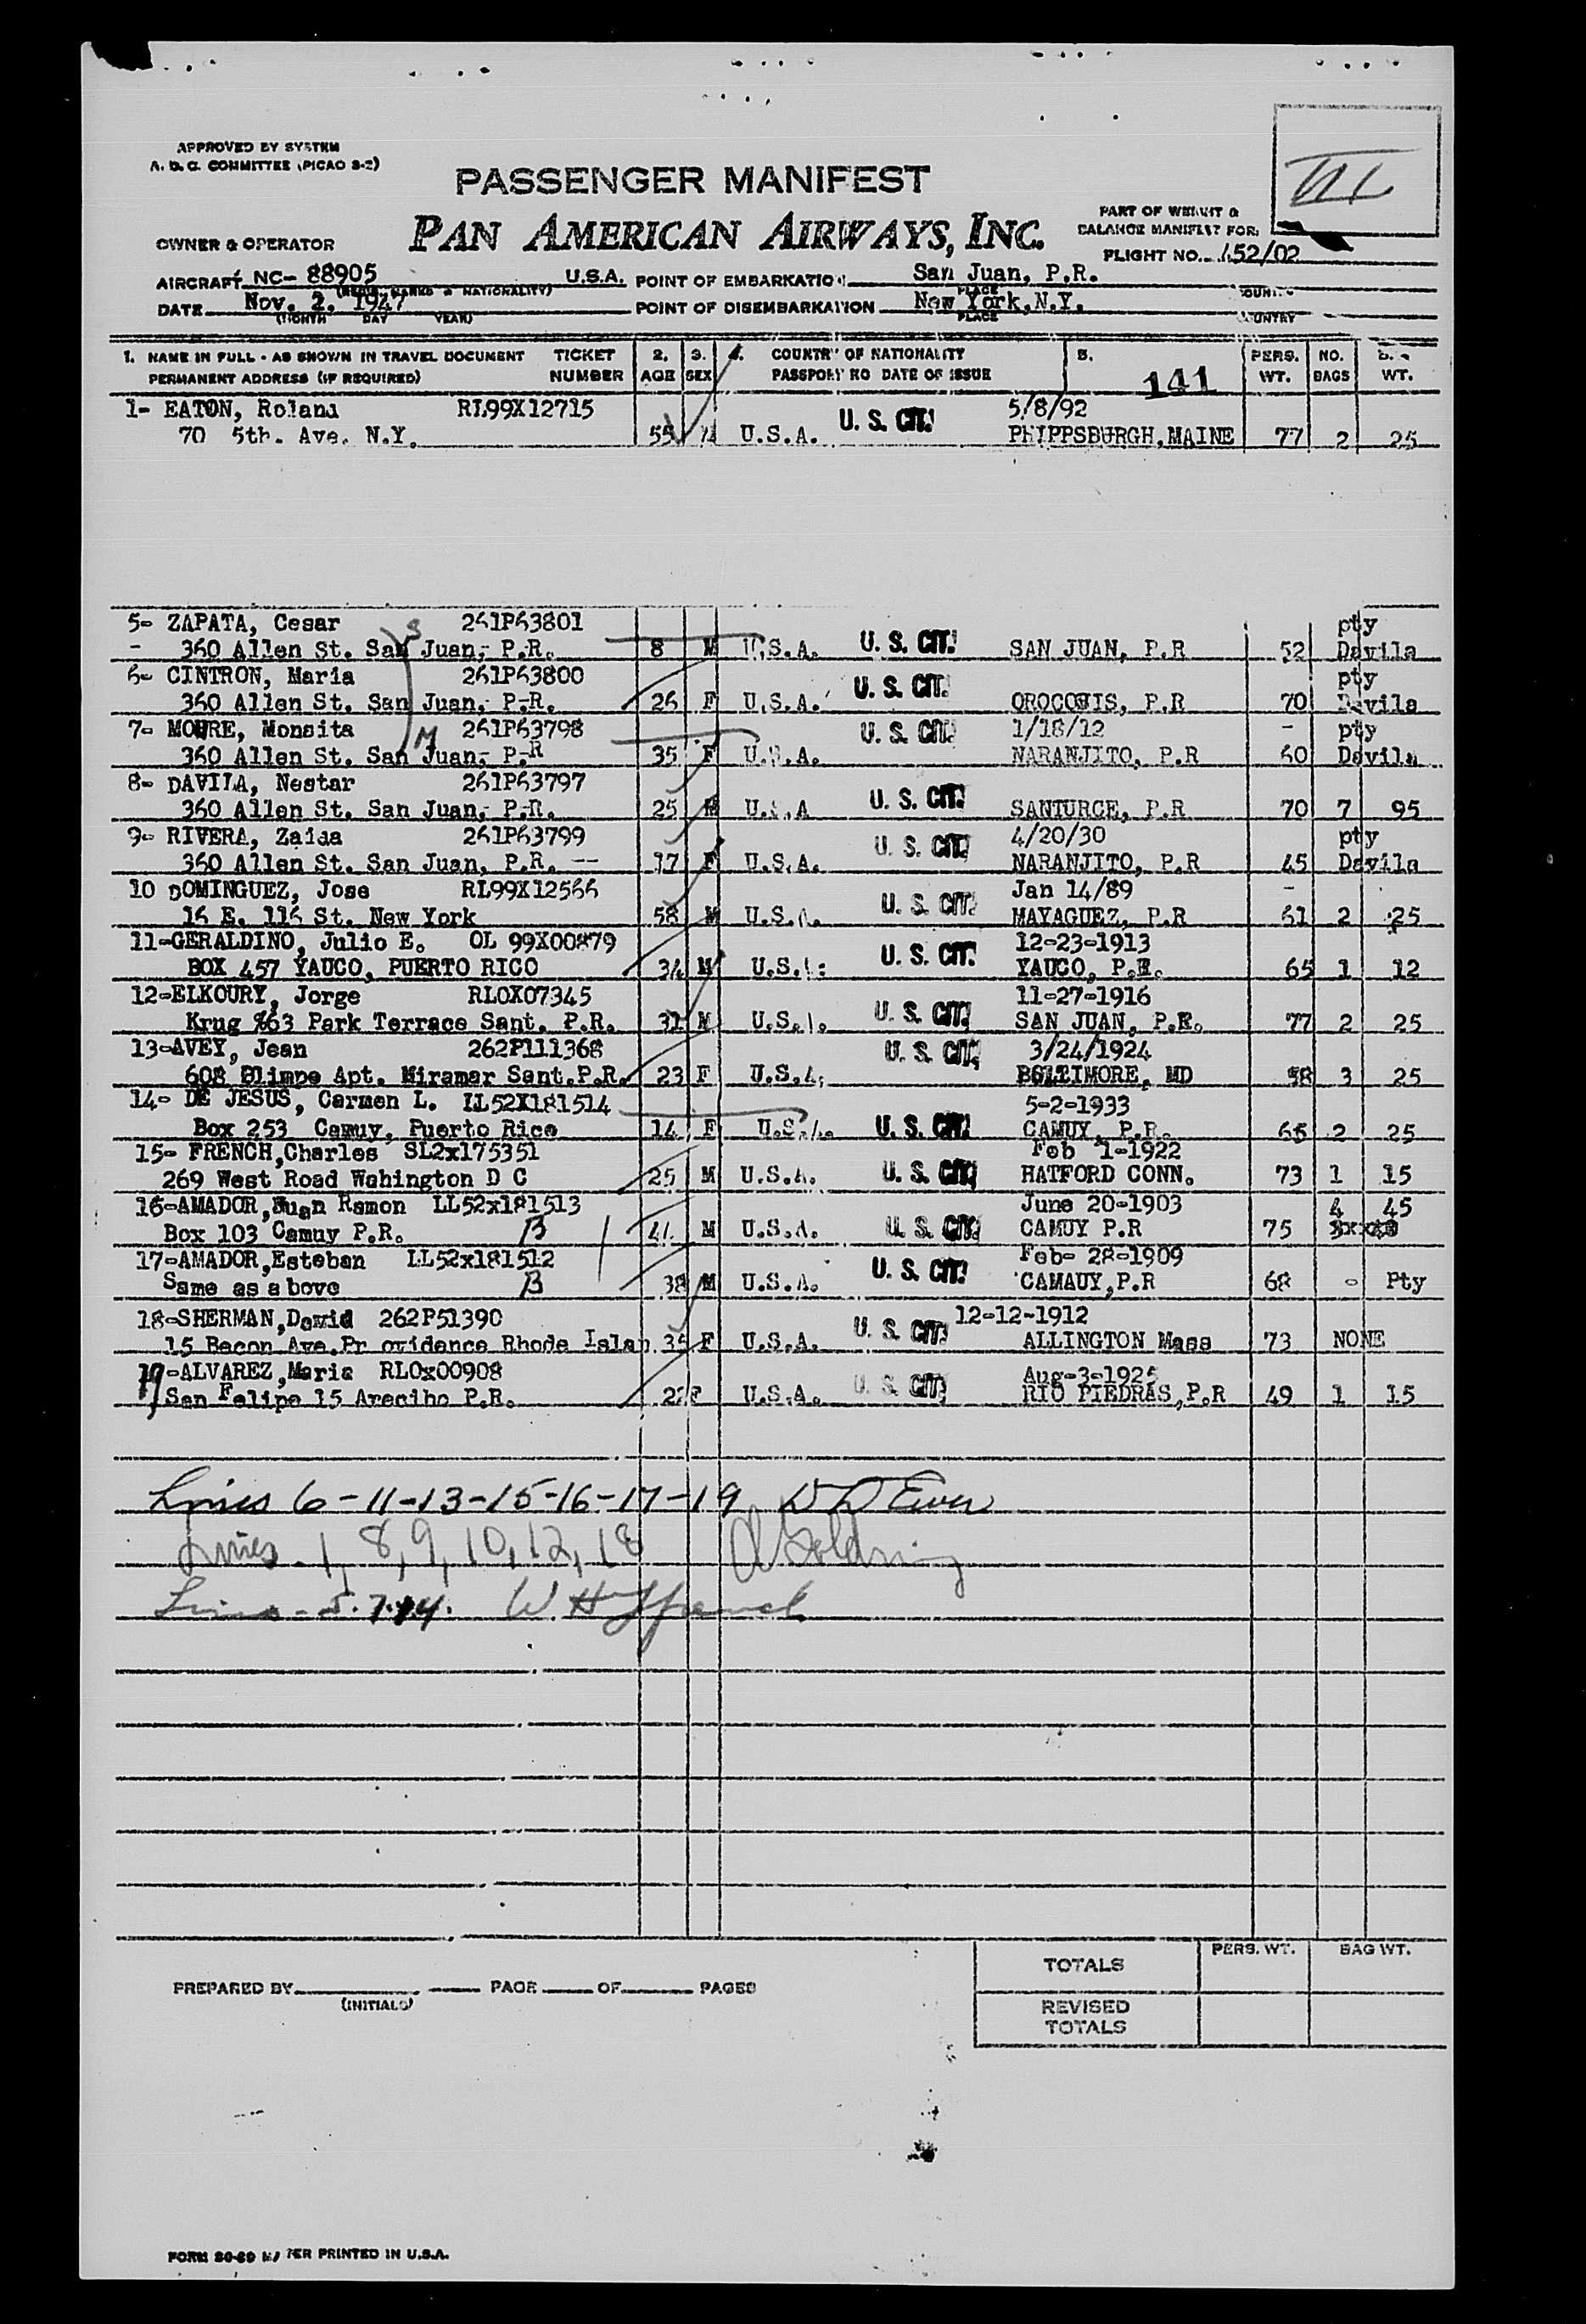 APPROVED BY SYSTEM
A. D. C. COMMITTEE (PICAO 3-2)
PASSENGER MANIFEST
PAN AMERICAN AIRWAYS, INC.
PART OF WEIGHT &
BALANCE MANIFEST FOR:
OWNER & OPERATOR
FLIGHT NO. 452/02
AIRCRAFT NC- 88905 U.S.A. POINT OF EMBARKATION San Juan, P.R.
DATE Nov. 2, 1947 POINT OF DISEMBARKATION New York, N.Y.
(MONTH DAY YEAR) PLACE COUNTRY
1. NAME IN FULL - AS SHOWN IN TRAVEL DOCUMENT TICKET 2. 3. 4. COUNTRY OF NATIONALITY 5. PERS. NO.
PERMANENT ADDRESS (IF REQUIRED) NUMBER AGE SEX PASSPORT NO DATE OF ISSUE 141 WT. BAGS WT.
1- EATON, Roland RL99X12715 U. S. CIT. 5/8/92
70 5th. Ave. N.Y. 55 U.S.A. PHIPPSBURGH, MAINE 77 2 25
5- ZAPATA, Cesar 261P63801 pty
- 360 Allen St. San Juan, P.R. 8 M U.S.A. U. S. CIT. SAN JUAN, P.R 52 Davila
6- CINTRON, Maria 261P63800 U. S. CIT. pty
360 Allen St. San Juan, P.R. 26 F U.S.A. OROCOVIS, P.R 70 Davila
7- MOURE, Monsita 261P63798 U. S. CIT. 1/18/12 - pty
360 Allen St. San Juan, P.R M 35 F U.S.A. NARANJITO, P.R 60 Davila
8- DAVILA, Nestar 261P63797 U. S. CIT.
360 Allen St. San Juan, P.R. 25 M U.S.A SANTURCE, P.R 70 7 95
9- RIVERA, Zaida 261P63799 U. S. CIT. 4/20/30 pty
360 Allen St. San Juan, P.R. -- 17 F U.S.A. NARANJITO, P.R 45 Davila
10 DOMINGUEZ, Jose RL99X12566 U. S. CIT. Jan 14/89 -
16 E. 116 St. New York 58 M U.S.A. MAYAGUEZ, P.R 61 2 25
11-GERALDINO, Julio E. OL 99X00879 U. S. CIT. 12-23-1913
BOX 457 YAUCO, PUERTO RICO 34 M U.S.A. YAUCO, P.R. 65 1 12
12-ELKOURY, Jorge RLOX07345 U. S. CIT. 11-27-1916
Krug %63 Park Terrace Sant. P.R. 31 M U.S.A. SAN JUAN, P.R. 77 2 25
13-AVEY, Jean 262P111368 U. S. CIT. 3/24/1924
608 Olimpo Apt. Miramar Sant.P.R. 23 F U.S.A. BOLTIMORE, MD 58 3 25
14- DE JESUS, Carmen L. LL52X181514 5-2-1933
Box 253 Camuy, Puerto Rico 14 F U.S.A. U. S. CIT. CAMUY, P.R. 65 2 25
15- FRENCH,Charles SL2x175351 Feb 1-1922
269 West Road Wahington D C 25 M U.S.A. U. S. CIT. HATFORD CONN. 73 1 15
16-AMADOR,Juan Ramon LL52x181513 June 20-1903 4 45
Box 103 Camuy P.R. B 44 M U.S.A. U. S. CIT. CAMUY P.R 75
17-AMADOR,Esteban LL52x181512 U. S. CIT. Feb- 28-1909
Same as above B 38 M U.S.A. CAMAUY,P.R 68 - Pty
18-SHERMAN,David 262P51390 U. S. CIT. 12-12-1912
15 Becon Ave.Pr ovidence Rhode Islan 35 F U.S.A. ALLINGTON Mass 73 NONE
19-ALVAREZ,Maria RLOx00908 Aug-3-1925
San Felipe 15 Arecibo P.R. 22F U.S.A. U. S. CIT. RIO PIEDRAS,P.R 49 1 15
Lines 6-11-13-15-16-17-19
Lines 1, 8, 9, 10, 12, 18
Lines - 5. 7. 14.
PERS. WT. BAG WT.
TOTALS
PREPARED BY PAGE OF PAGES
(INITIALS)
REVISED
TOTALS
PRINTED IN U.S.A.